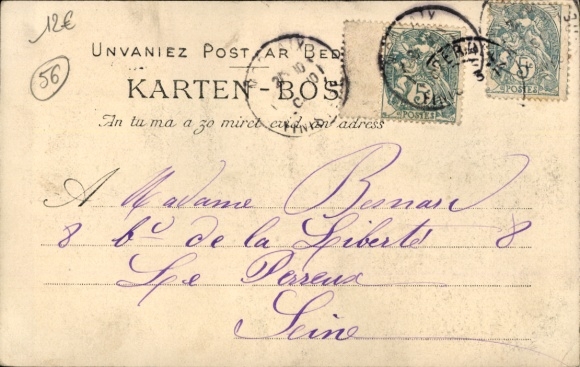 12€
56
UNVANIEZ POST AR BED
KARTEN-BOS
An tu ma a zo miret evid an adress
5
POSTES
5
POSTES
A Madame Besnard
8 bd de la Liberté 8
Le Perreux
Seine